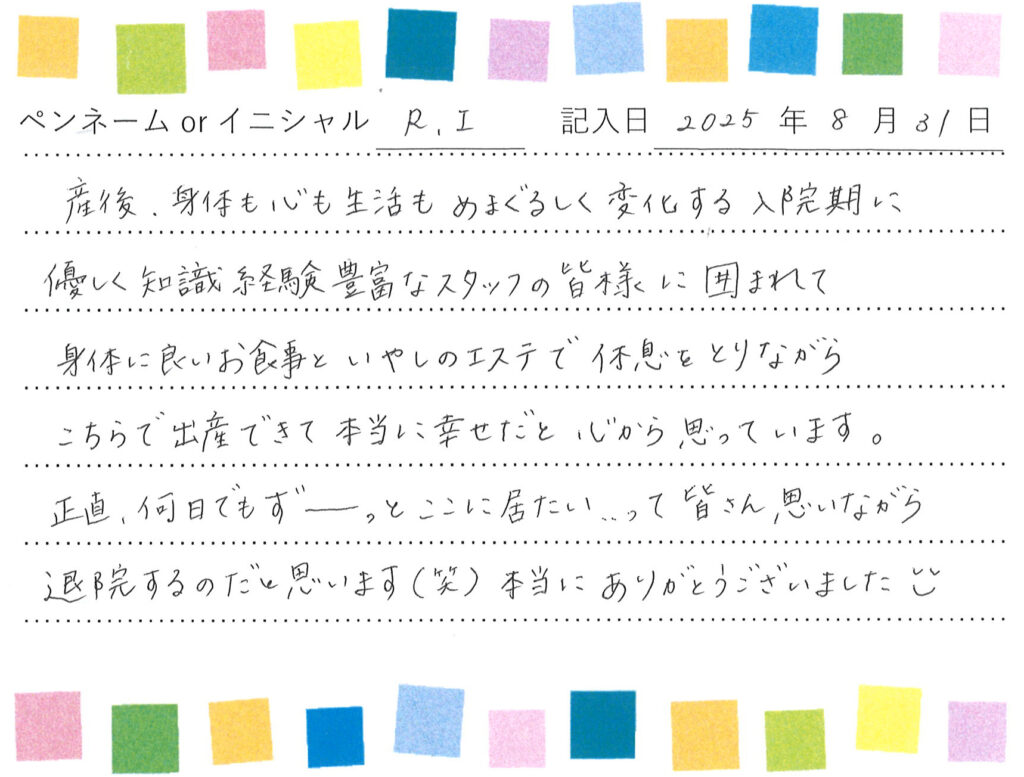 ペンネーム or イニシャル R.I 記入日 2025 年 8 月 31 日
産後、身体も心も生活もめまぐるしく変化する入院期に
優しく知識経験豊富なスタッフの皆様に囲まれて
身体に良いお食事といやしのエステで休息をとりながら
こちらで出産できて本当に幸せだと心から思っています。
正直、何日でもずーーっとここに居たい...って皆さん思いながら
退院するのだと思います(笑)本当にありがとうございました